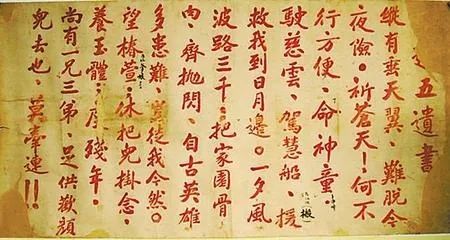 五遺書
縱有垂天翼、難脫今
夜險。祈蒼天!何不
行方便、命神童、
駛慈雲、駕慧船、援
救我到日月邊。一夕風
波路三千:把家園骨
肉、齊拋閃、自古英雄
多患難、豈徒我今然。
望椿萱:休把兒掛念、
養玉體:度殘年。
尚有一兄三弟、足供歡顏
兒去也、莫牽連!!